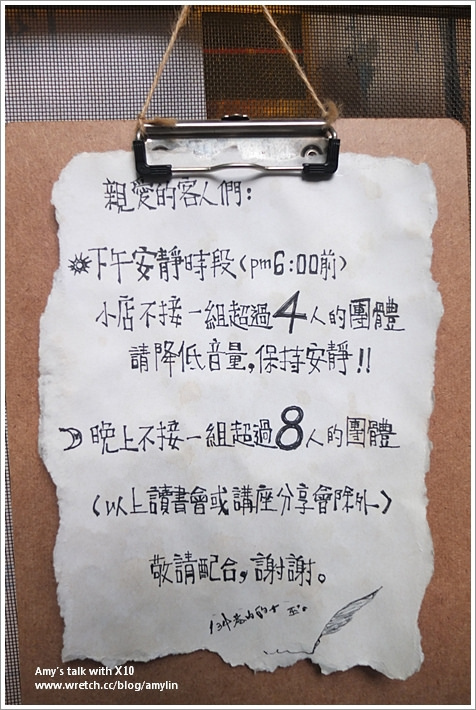 親愛的客人們:
下午安靜時段(pm6:00前)
小店不接一組超過4人的團體
請降低音量,保持安靜!!
晚上不接一組超過8人的團體
(以上讀書會或講座分享會除外)
敬請配合,謝謝。
Amy's talk with X10
www.wretch.cc/blog/amylin